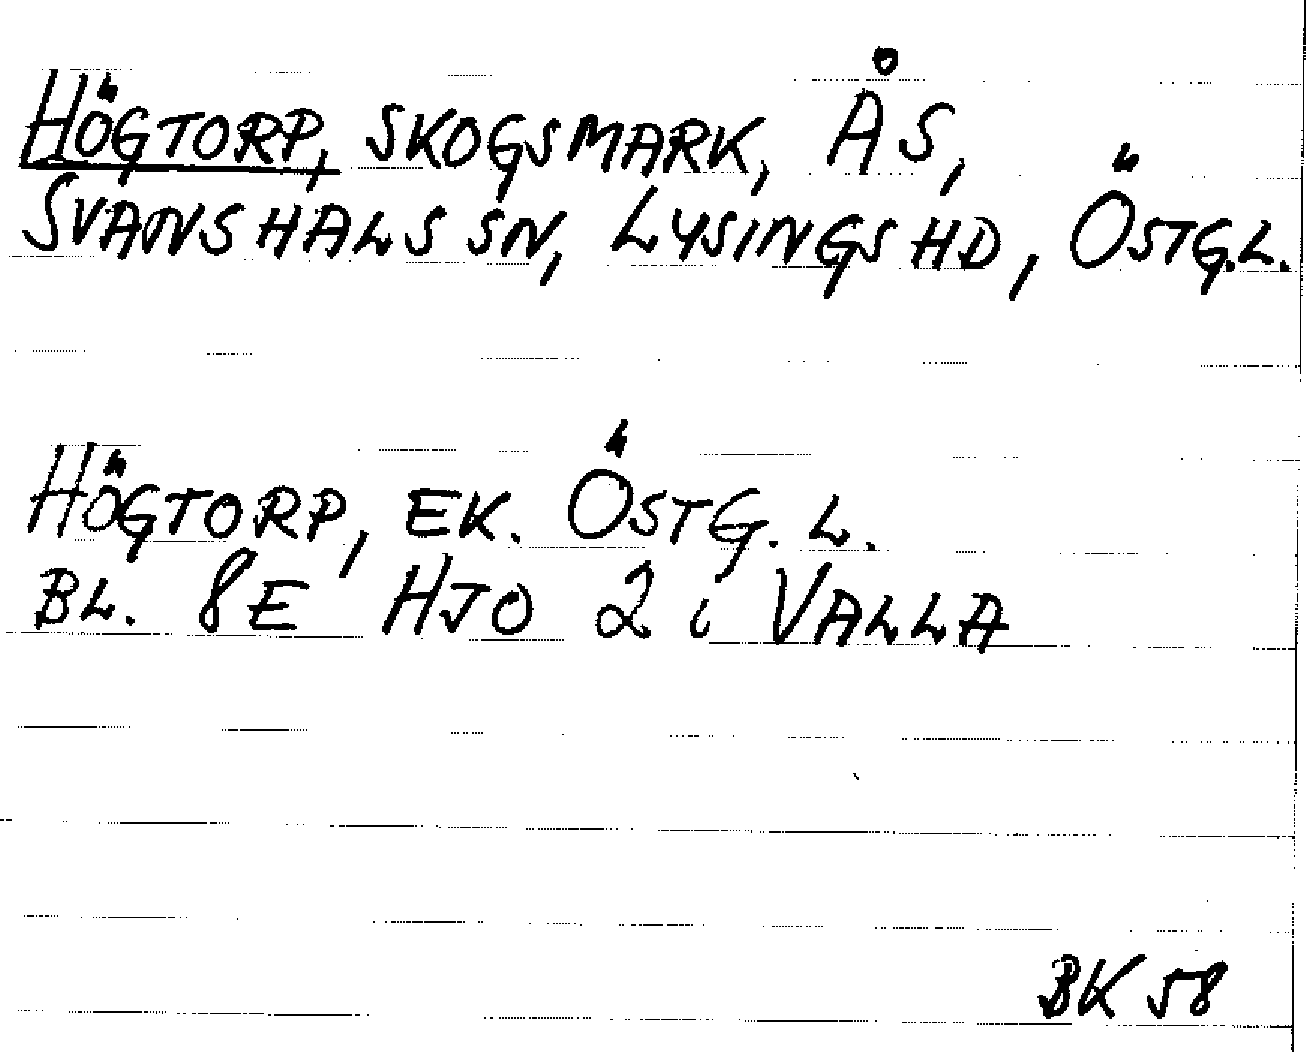 HÖGTORP, SKOGSMARK, ÅS,
SVANSHALS SN, LYSINGS HD, ÖSTG.L.
HÖGTORP, EK. ÖSTG. L.
BL. 8E HJO 2 i VALLA
BK 58